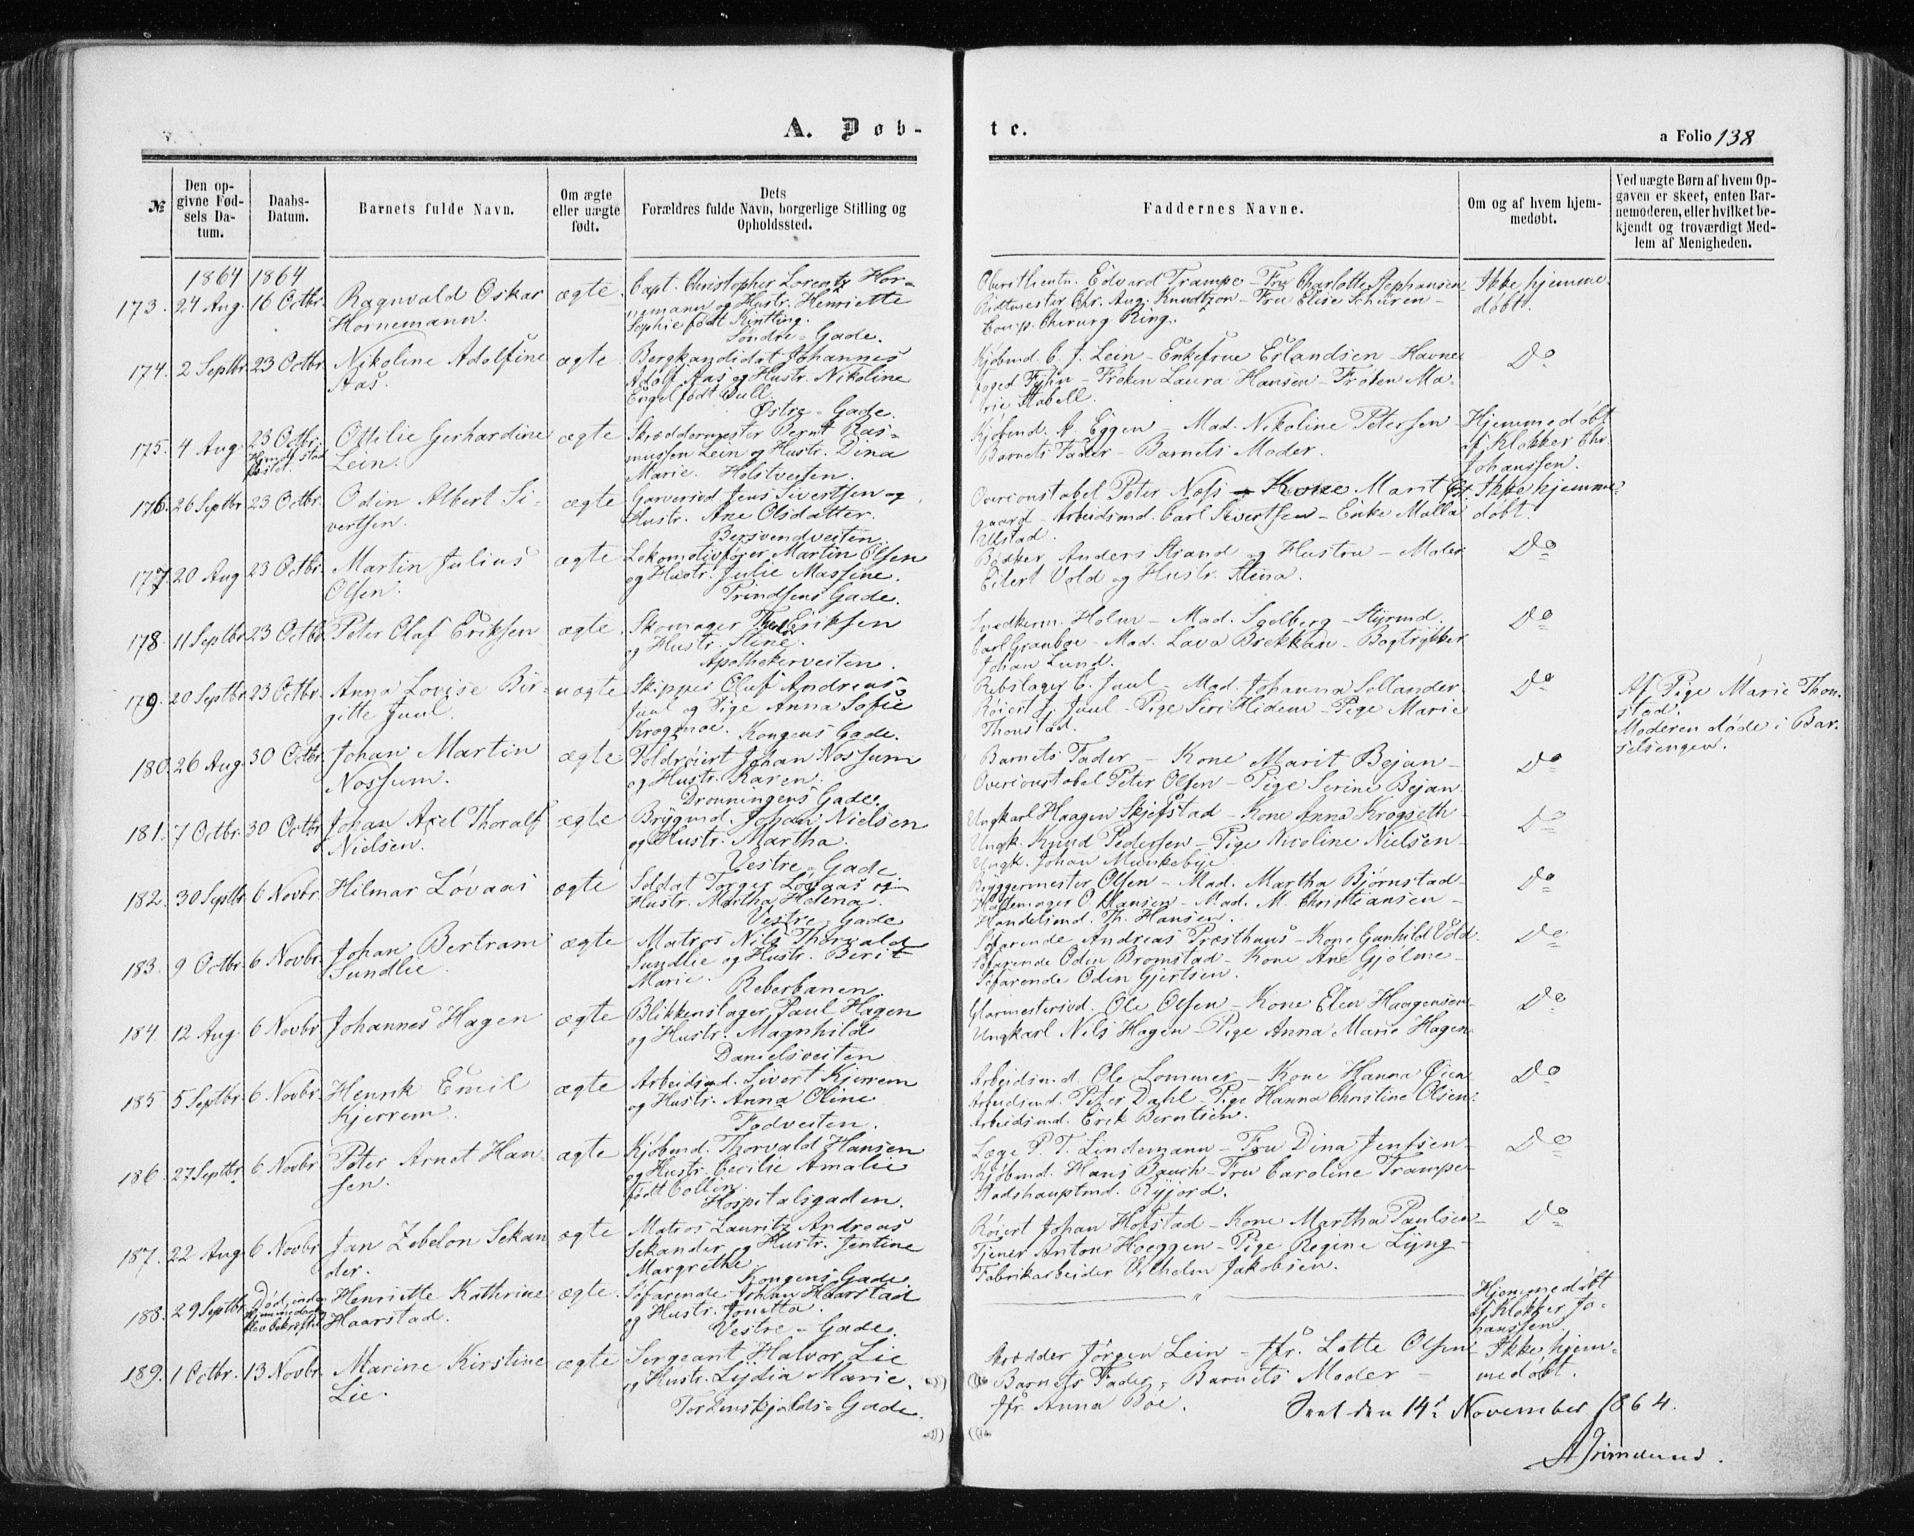 A. Døb-
te.
a Folio 138
№
Den op-
givne Fød-
sels Da-
tum.
Daabs-
Datum.
Barnets fulde Navn.
Om ægte
eller uægte
født.
Dets
Forældres fulde Navn, borgerlige Stilling og
Opholdssted.
Faddernes Navne.
Om og af hvem hjem-
medøbt.
Ved uægte Børn af hvem Op-
gaven er skeet, enten Bar-
nemoderen, eller hvilket be-
kjendt og troværdigt Med-
lem af Menigheden.
1864 1864
173. 24 Aug. 16 Octbr.
Ragnvald Oskar
Hornemann.
ægte.
Capt. Christopher Lorentz Hor-
nemann og Hustr. Henriette
Sophie født Kintling.
Søndre-Gade.
Oberstlieutn. Edvard Trampe - Fru Charlotte Stephansen
Ridtmester Chr. Aug. Knudtzon - Fru Elise Schieren -
Comp. Chirurg Ring.
Ikke hjemme
døbt.
174. 2 Septbr. 23 Octbr.
Nikoline Adolfine
Aas.
ægte
Bergkandidat Johannes
Adolf Aas og Hustr. Nikoline
Engel født Bull.
Østre-Gade.
Kjøbmd. C. J. Lein - Enkefrue Erlandsen - Havne
foged Fyhn - Frøken Laura Hansen - Frøken Ma-
rie Stabell.
Do
175. 4 Aug. 23 Octbr.
Ottilie Gerhardine
Lein.
ægte
Skræddermester Bernt Ras-
mussen Lein og Hustr. Dina
Marie. Holstveiten.
Kjøbmd. A. Eggen - Mad. Nikoline Petersen
Barnets Fader - Barnets Moder.
Hjemmedøbt
af Klokker Chr.
Johanssen.
176. 26 Septbr. 23 Octbr.
Odin Albert Si-
vertsen.
ægte
Garversvd Jens Sivertsen og
Hustr. Ane Olsdatter.
Bersvendveiten.
Overconstabel Peter Næss - Kone Marit
gaard - Arbeidsmd. Carl Sivertsen - Enke Malla
Ulstad.
Ikke hjemme
døbt.
177. 20 Aug. 23 Octbr.
Martin Julius
Olsen.
ægte
Lokomotivfører Martin Olsen
og Hustr. Julie Massine.
Trindsens Gade.
Bødker Anders Strand og Hustru - Maler
Eilert Vold og Hustr. Stina.
Do
178. 11 Septbr. 23 Octbr.
Peter Olaf Eriksen
ægte.
Skomager Eriksen
og Hustr. Stine.
Apothekerveiten.
Snedkerm. Holm - Mad. Sgelberg - Styrmd.
Carl Granboe - Mad. Lava Brekkan - Bogtrykker
Johan Lund.
Do
179. 20 Septbr. 23 Octbr.
Anna Lovise Bir-
gitte Juul.
uægte
Skipper Oluf Andreas
Juul og Pige Anna Sofie
Krogmoe. Kongens Gade.
Rebslager C. Juul - Mad. Johanna Sellander
Røiert J. Juul - Pige Siri Hidem - Pige Marie
Thonstad.
Do
Af Pige Marie Thon-
stad.
Moderen døde i Bar-
selsengen.
180. 26 Aug. 30 Octbr.
Johan Martin
Nossum.
ægte
Toldrøiert Johan Nossum
og Hustr. Karen.
Dronningens Gade.
Barnets Fader - Kone Marit Bejan -
Overconstabel Peter Olsen - Pige Serine Bejan.
Do
181. 7 Octbr. 30 Octbr.
Johan Axel Thoralf
Nielsen.
ægte
Brygmd. Johan Nielsen
og Hustr. Martha.
Vestre-Gade.
Ungkarl Haagen Skjefstad - Kone Anna Krogseth
Ungk. Knud Pedersen - Pige Nicoline Nielsen -
Ungk. Johan Munkebye.
Do
182. 30 Septbr. 6 Novbr.
Hilmar Løvaas
ægte
Soldat Torger Løvaas og
Hustr. Martha Helena.
Vestre-Gade
Bryggermester Olsen - Mad. Martha Bjørnstad -
Hattemager O. Hansen - Mad. M. Christiansen -
Handelsmd. Th. Hansen.
Do
183. 9 Octbr. 6 Novbr.
Johan Bertram
Sundlie.
ægte
Matros Nils Thorvald
Sundlie og Hustr. Berit
Marie. Reberbanen.
Søfarende Andreas Præsthuus - Kone Gunhild Vold.
Søfarende Oden Bromstad - Kone Ane Gjølme -
Søfarende Odin Gjertsen.
Do
184. 12 Aug. 6 Novbr.
Johannes Hagen
ægte
Blikkenslager Paul Hagen
og Hustr. Magnhild
Danielsveiten
Glarmestersvd. Ole Olsen - Kone Elen Haagensen
Ungkarl Nils Hagen - Pige Anna Marie Hagen
Do
185 5 Septbr. 6 Novbr.
Henrik Emil
Kjerrem.
ægte
Arbeidsmd. Sivert Kjerrem
og Hustr. Anna Oline
Fodveiten.
Arbeidsmd. Ole Lommer - Kone Hanna Øien
Arbeidsmd. Peter Dahl - Pige Hanna Christine Olsen.
Arbeidsmd. Erik Berntsen.
Do
186. 27 Septbr. 6 Novbr.
Peter Arnet Han-
sen.
ægte
Kjøbmd. Thorvald Hansen
og Hustr. Cecilie Amalie
født Collin.
Hospitalsgaden.
Læge P. T. Lindemann - Fru Dina Jenssen -
Kjøbmd. Hans Bauch - Fru Caroline Trampe -
Stadshauptmd. Ryjord.
Do
187. 22 Aug. 6 Novbr.
Jan Zebelon Sekan
der.
ægte
Matros Lauritz Andreas
Sekander og Hustr. Jentine
Margrethe.
Kongens Gade.
Røiert Johan Hofstad - Kone Martha Paulsen -
Tjener Anton Hoeggen - Pige Regine Lyng -
Fabrikarbeider Vilhelm Jakobsen.
Do
188. 29 Septbr.
Død, inden
hjemmedaaben
blev bekræftet
Henriette Kathrine
Haarstad.
ægte.
Søfarende Johan Haarstad
og Hustr. Jonetta.
Vestre-Gade.
"
Hjemmedøbt
af Klokker Jo-
hanssen
189. 1 Octbr. 13 Novbr.
Marine Kirstine
Lie.
ægte
Sergeant Halvor Lie
og Hustr. Lydia Marie.
Tordenskjolds-Gade.
Skrædder Jørgen Lein - Jfr. Lotte Olsen
Barnets Fader, Barnets Moder -
Jfr. Anna Boe.
Ikke hjem-
medøbt.
Seet den 14de November 1864.
A Grimelund.